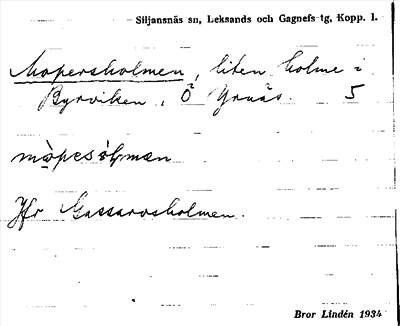 Siljansnäs sn, Leksands och Gagnefs tg, Kopp. l.
Mopersholmen, liten holme i
Byrviken, Ö Grnäs. 5
Jfr Gassarvsholmen.
Bror Lindén 1934